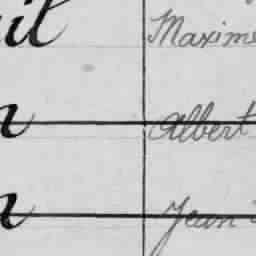 il Maxime
n Albert
n Jean